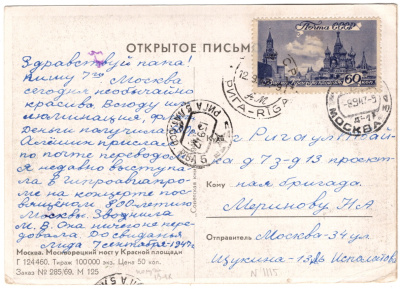 ОТКРЫТОЕ ПИСЬМО
Почта СССР
60
Здравствуй папа!
Пишу 7го. Москва
сегодня необычайно
красива. Всюду ил
люминация, фл
Деньги получила
прислал
по почте перевод
Я недавно выступа
ла в
ме на концерте пос
вящённом 800-летию
Москвы. Звонила
М. В. Она ничего не пере
давала. До свидания
Лида 7 сентября 1947г.
РИГА-RIGA
МОСКВА
г. Рига ул.
д 73-д 13 проект
Кому
ная бригада.
Меринову Н А
Отправитель Москва-34 ул.
Щукина
Москва. Москворецкий мост у Красной площади
Г 124460. Тираж 100000 экз. Цена 50 коп.
Заказ № 285/69. М 125
N 1115